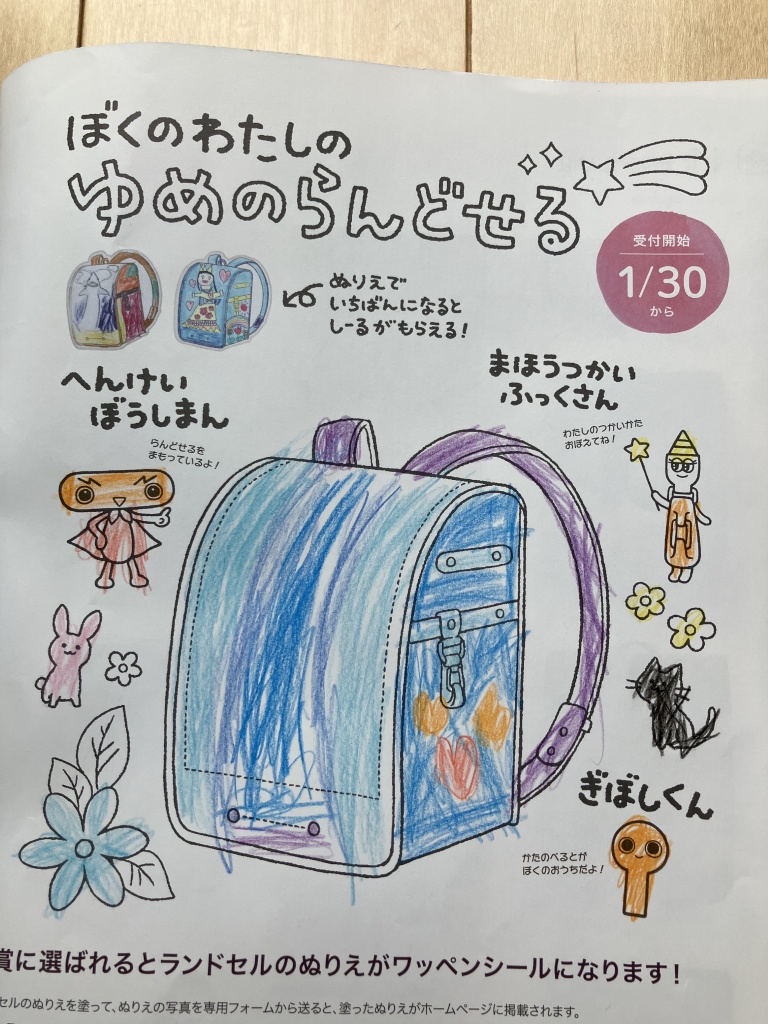 ぼくのわたしの
ゆめのらんどせる
受付開始
1/30
から
ぬりえで
いちばんになると
しーるがもらえる!
へんけい
ぼうしまん
らんどせるを
まもっているよ!
まほうつかい
ふっくさん
わたしのつかいかた
おぼえてね!
ぎぼしくん
かたのべるとが
ぼくのおうちだよ!
賞に選ばれるとランドセルのぬりえがワッペンシールになります!
セルのぬりえを塗って、ぬりえの写真を専用フォームから送ると、塗ったぬりえがホームページに掲載されます。